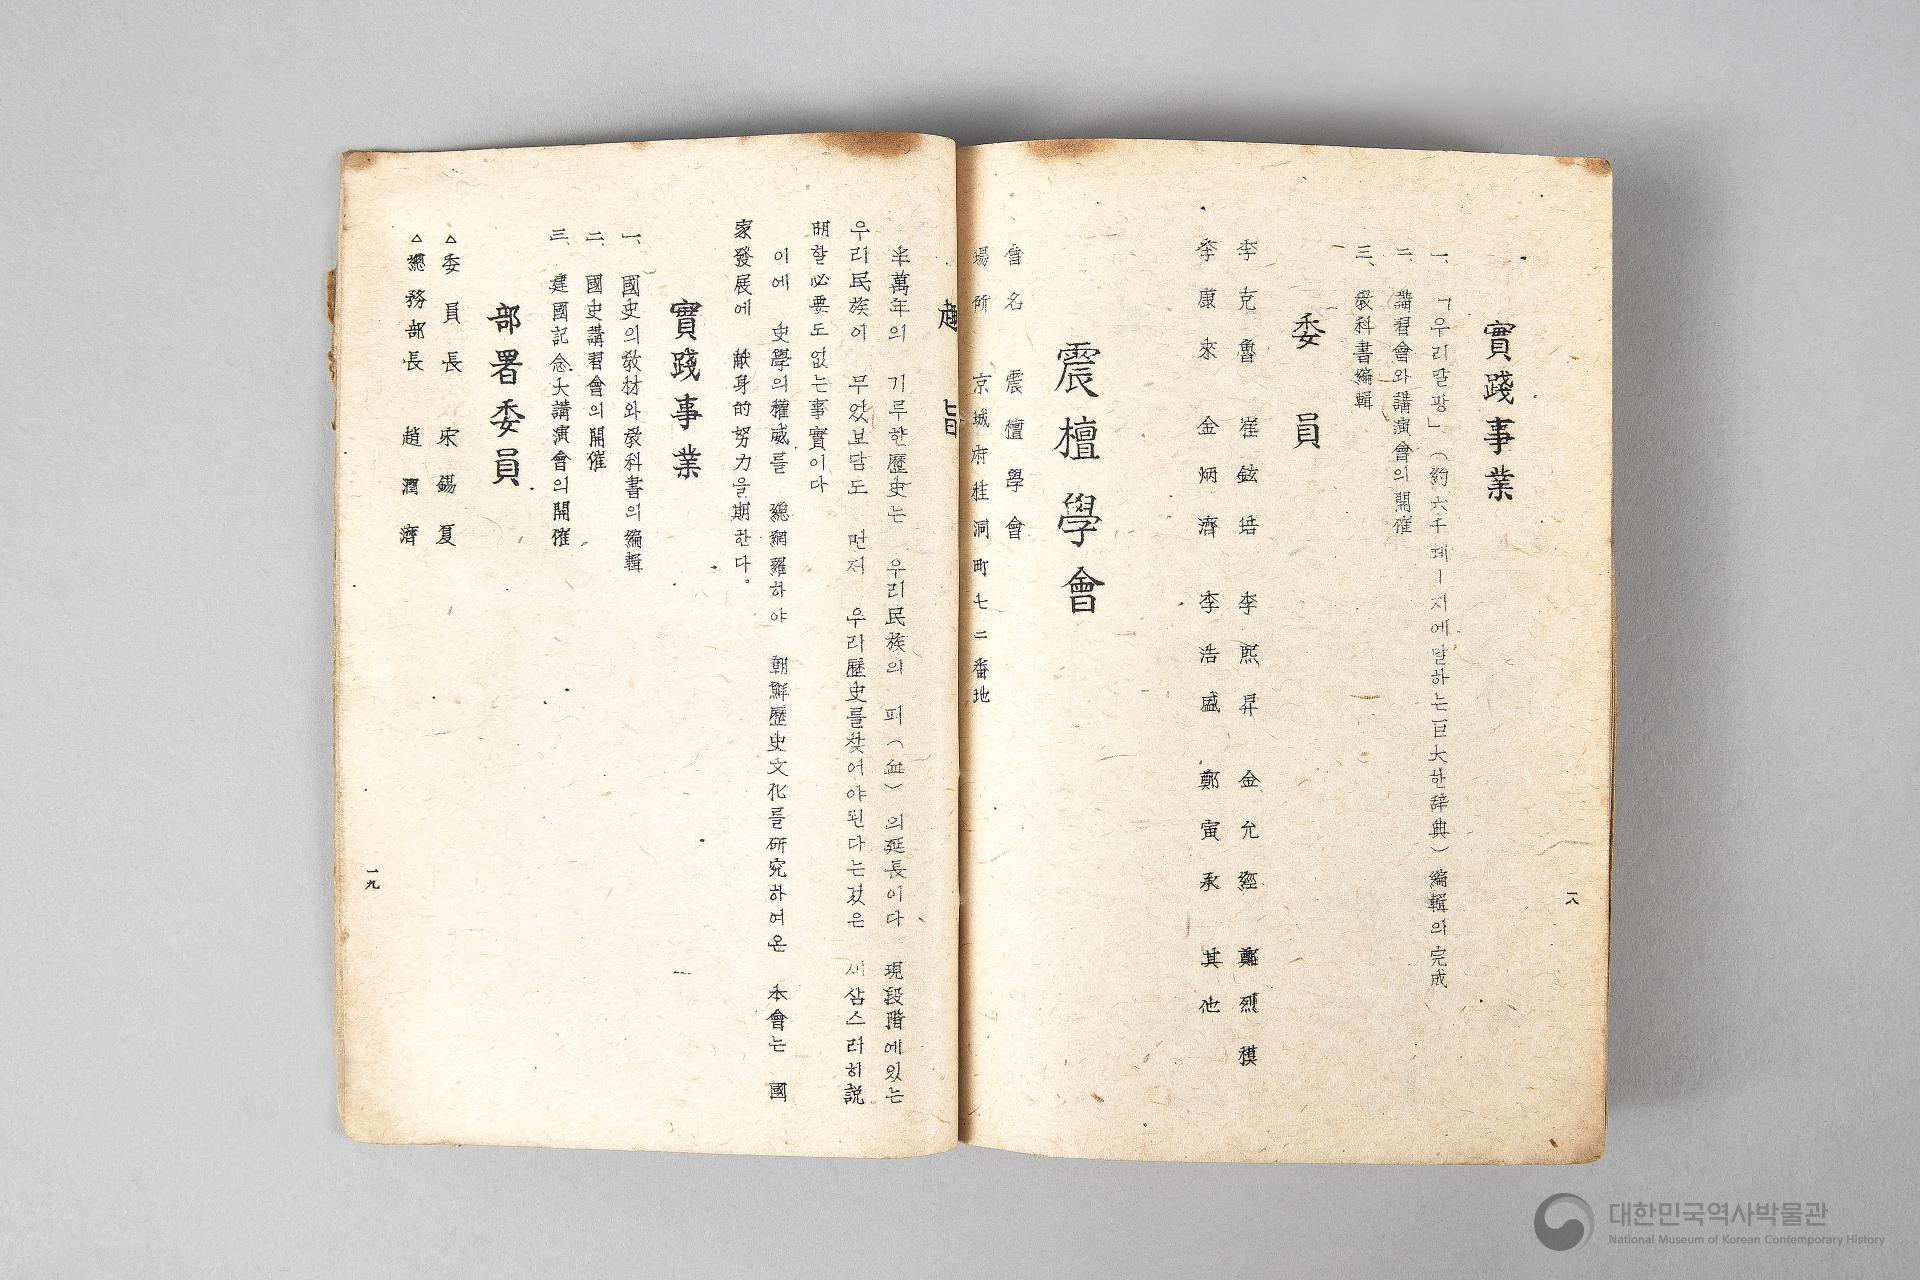 實踐事業
一、「우리말광」（約六千페ー지에달하는巨大한辞典）編輯의完成
二、講習會와講演會의開催
三、敎科書編輯
委員
李克魯 崔鉉培 李熙昇 金允經 鄭烈模
李康來 金炳濟 李浩盛 鄭寅承 其他
震檀學會
會名 震檀學會
場所 京城府桂洞町七二番地
一八
趣旨
半萬年의 기루한歷史는 우리民族의 피（血）의延長이다 現段階에있는
우리民族이 무었보담도 먼저 우리歷史를찾어야된다는것은 새삼스러히説
明할必要도없는事實이다
이에 史學의權威를 總網羅하야 朝鮮歷史文化를研究하여온 本會는 國
家發展에 献身的努力을期한다。
實踐事業
一、國史의敎材와敎科書의編輯
二、國史講習會의開催
三、建國記念大講演會의開催
部署委員
△委員長 宋錫夏
△總務部長 趙潤濟
一九
대한민국역사박물관
National Museum of Korean Contemporary History